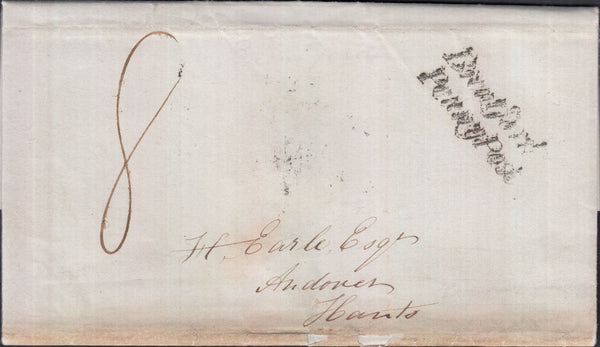 8
Penny Post
H. Earle Esqr
Andover
Hants